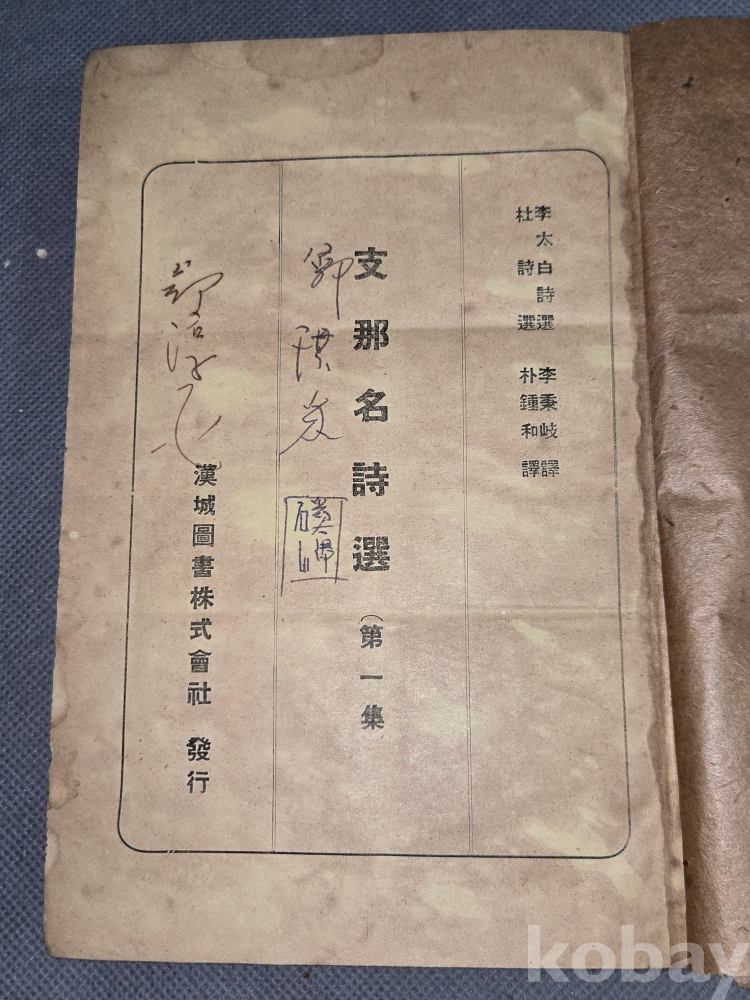 李太白詩選 李秉岐譯
杜詩選 朴鍾和譯
支那名詩選（第一集）
漢城圖書株式會社 發行
kobay